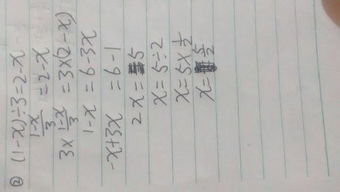 ② (1-x)÷3=2-x
\frac{1-x}{3} =2-x
3×\frac{1-x}{3} =3×(2-x)
1-x =6-3x
-x+3x =6-1
2x=5
x=5÷2
x=5×\frac{1}{2}
x=\frac{5}{2}